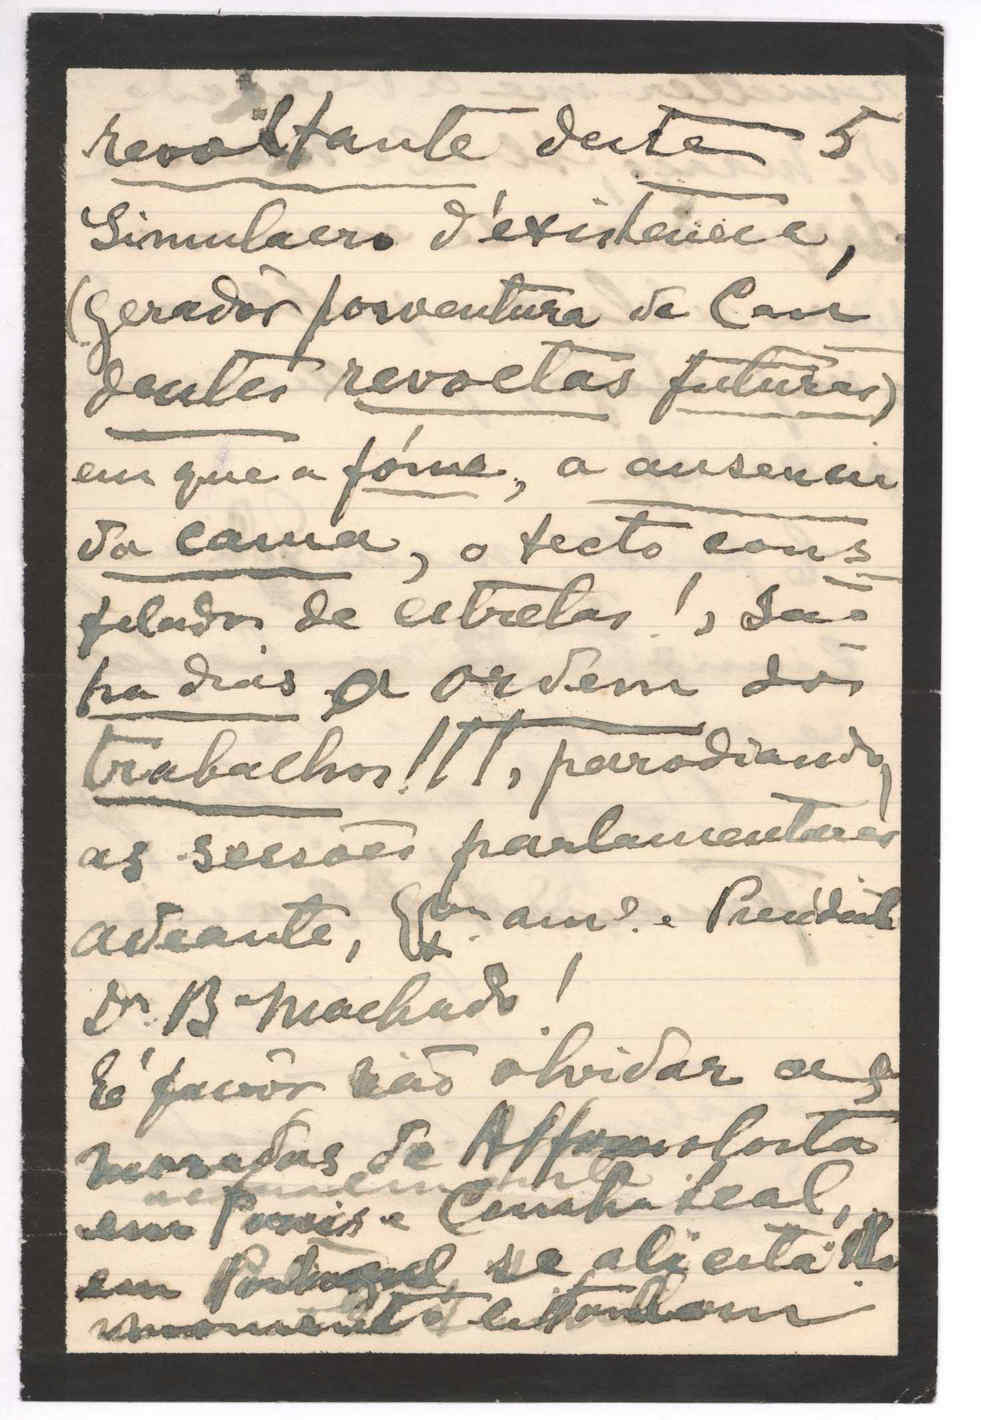 revoltante deste 5
Simulacro d'existencia,
(gerador porventura de Can
dentes revoltas futuras)
em que a fóme, a ausencia
da cama, o tecto cons
telado de estrelas!, são
ha dias a ordem dos
trabalhos!!!!, parodiando
as sessões parlamentares
adeante, Exmº amº e Presidente
Dr. B Machado!
É favôr não olvidar as
moradas de Affonso Costa
em Paris e Cunha Leal,
em Portugal, se ali está
momento e tambem